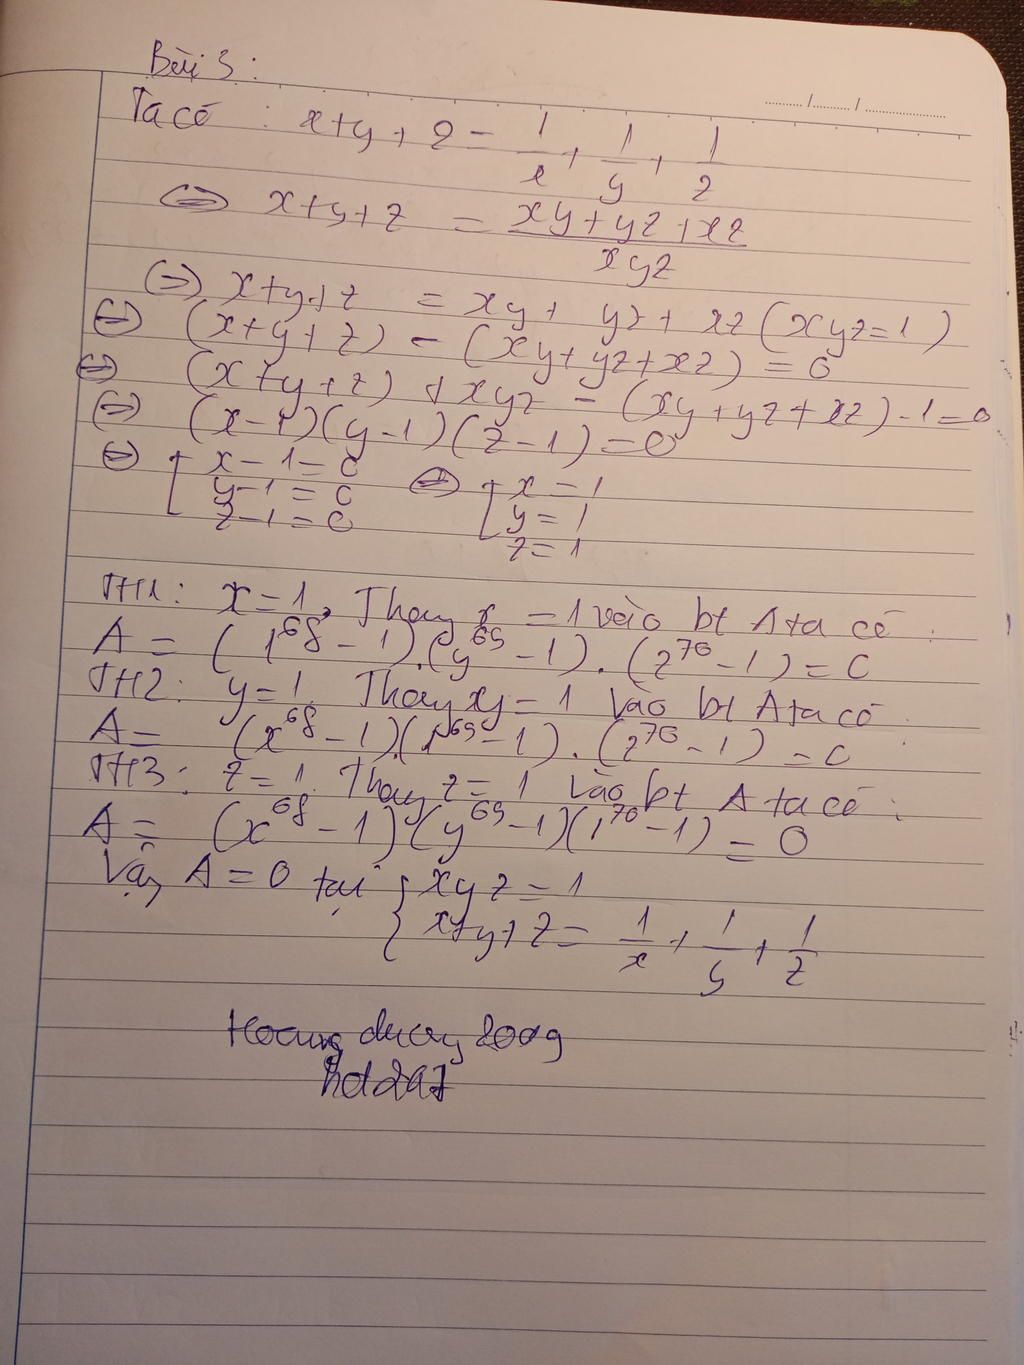 Bài 3 :
Ta có : x+y+z = 1/x + 1/y + 1/z
⇔ x+y+z = (xy+yz+xz)/(xyz)
⇔ x+y+z = xy+ yz+ xz (xyz=1)
⇔ (x+y+z) - (xy+yz+xz) = 0
⇔ (x+y+z) + xyz - (xy+yz+xz)-1=0
⇔ (x-1)(y-1)(z-1)=0
⇔ [ x-1=0 ⇔ [ x=1
y-1=0 y=1
z-1=0 z=1
TH1: x=1, Thay x =1 vào bt A ta có :
A = (1^68 - 1).(y^69 - 1).(z^70 - 1) = 0
TH2: y=1. Thay xy=1 vào bt A ta có :
A = (x^68 - 1)(1^69 - 1).(z^70 - 1) = 0
TH3: z=1. Thay z=1 vào bt A ta có :
A = (x^68 - 1)(y^69 - 1)(1^70 - 1) = 0
Vậy A=0 tại { xyz=1
x+y+z = 1/x + 1/y + 1/z
2009
hd297